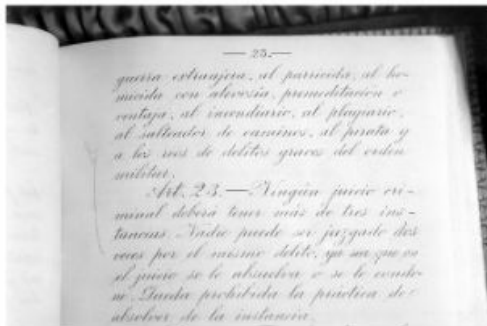 — 25. —
guerra extranjera, al parricida, al ho-
micida con alevosía, premeditación o
ventaja, al incendiario, al plagiario,
al salteador de caminos, al pirata y
a los reos de delitos graves del orden
militar.
Art. 23. — Ningún juicio cri-
minal deberá tener más de tres ins-
tancias. Nadie puede ser juzgado dos
veces por el mismo delito, ya sea que en
el juicio se le absuelva o se le conde-
ne. Queda prohibida la práctica de
absolver de la instancia.